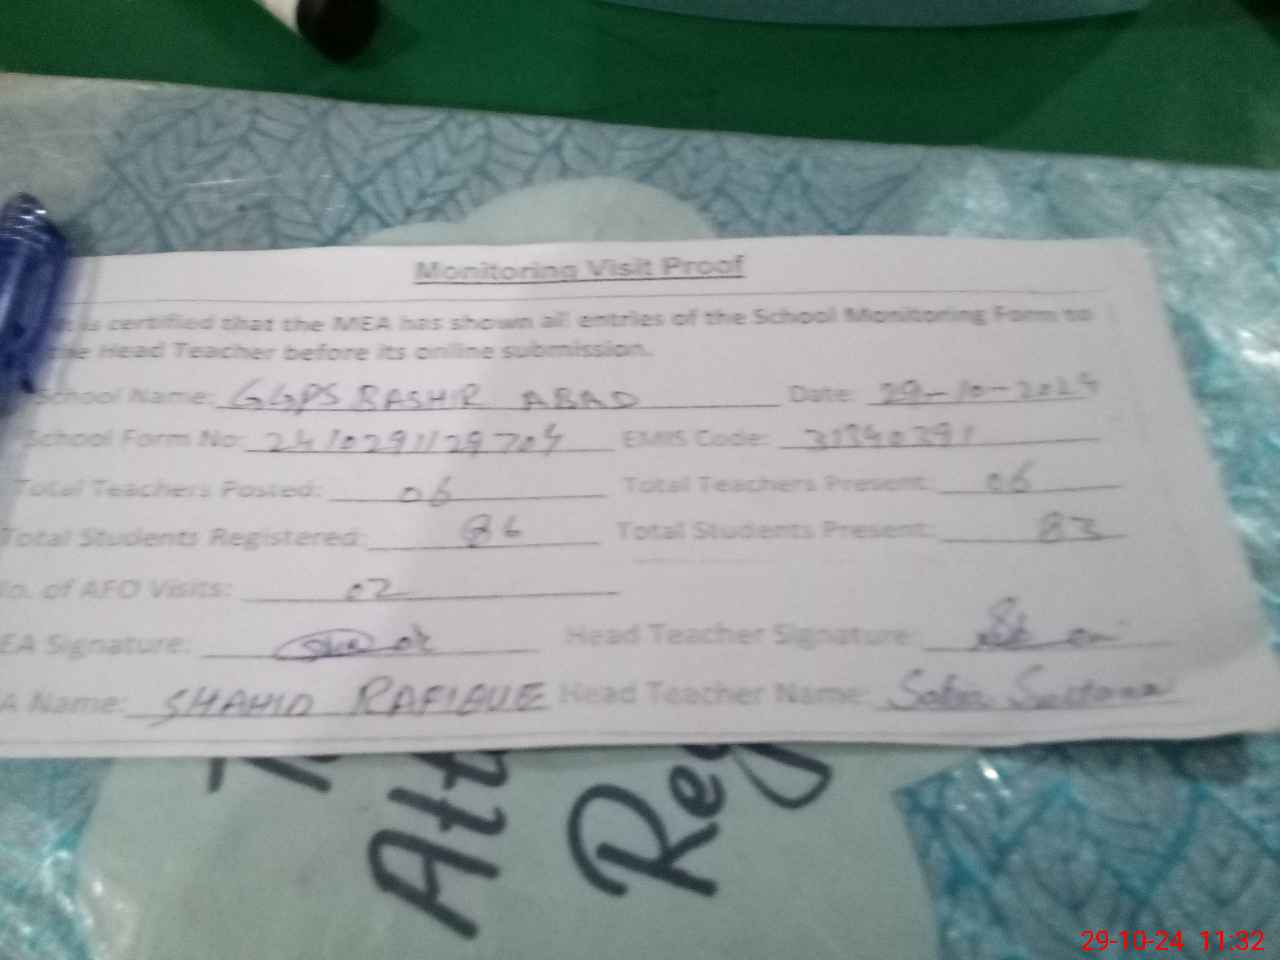 Monitoring Visit Proof
is certified that the MEA has shown all entries of the School Monitoring Form to
Head Teacher before its online submission.
School Name: GGPS BASHIR ABAD Date: 29-10-2024
School Form No: 2410291129704 EMIS Code: 31340391
Total Teachers Posted: 06 Total Teachers Present: 06
Total Students Registered: 86 Total Students Present: 83
No. of AFO Visits: 02
EA Signature: Head Teacher Signature:
A Name: SHAHID RAFIQUE Head Teacher Name: Sobia Sultana
Att
Reg
29-10-24 11:32